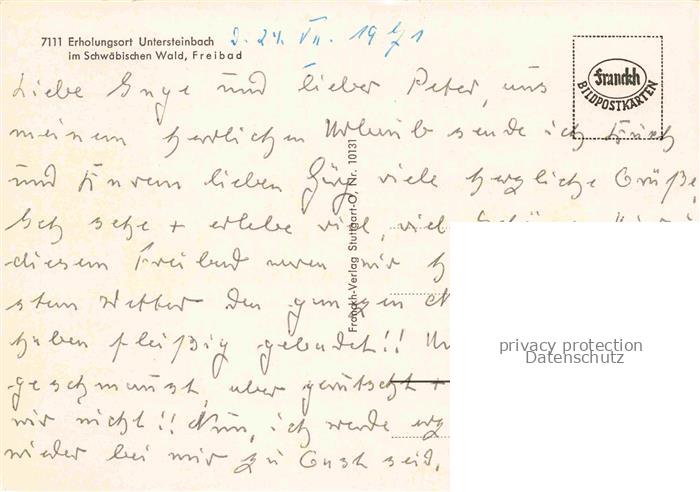 7111 Erholungsort Untersteinbach
im Schwäbischen Wald, Freibad
d. 24. VII. 1971
Franckh
BILDPOSTKARTEN
Liebe Inge und lieber Peter, aus
meinem herrlichen Urlaub sende ich Euch
und Eurem lieben Jörg viele herzliche Grüße,
Ich sehe + erlebe viel, viel
diesem Freibad waren wir
stem Wetter den ganzen
haben fleißig gebadet!!
geschmaust, aber gerutscht +
wir nicht!! Nun, ich werde
wieder bei mir zu Gast seid.
Franckh-Verlag Stuttgart-O, Nr. 10131
privacy protection
Datenschutz